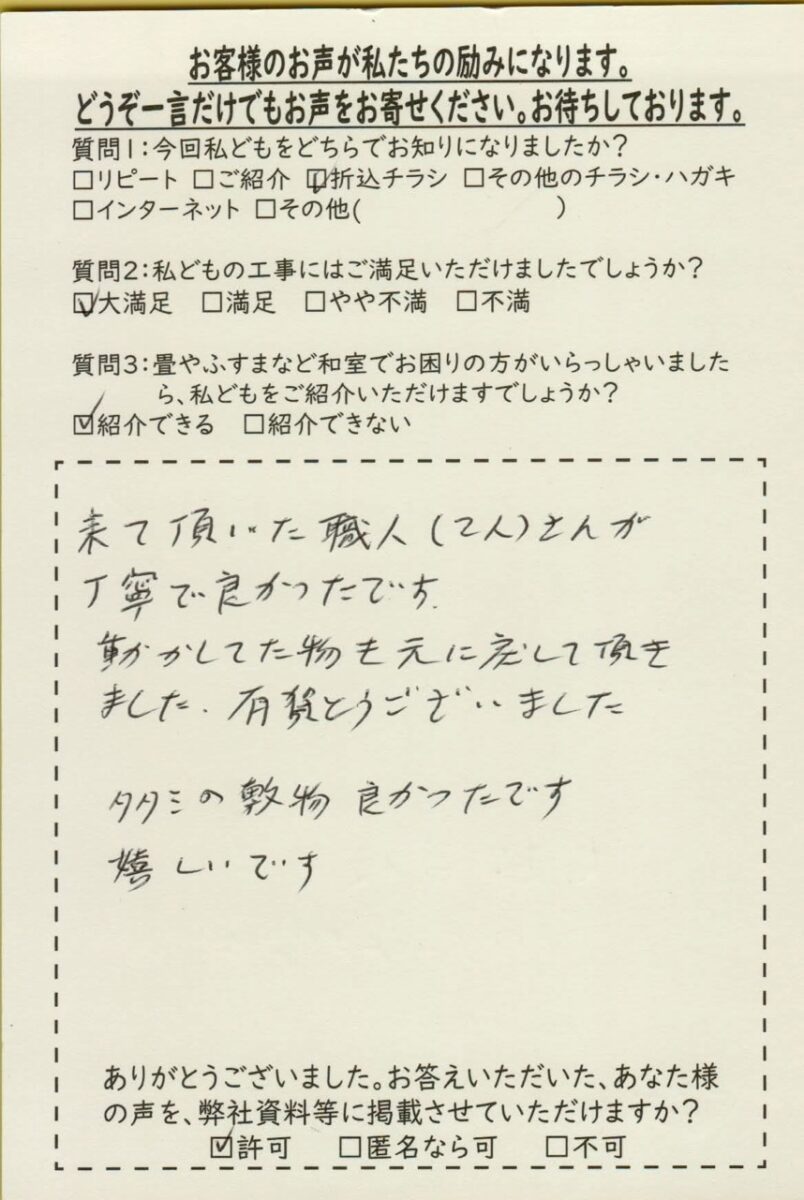 お客様のお声が私たちの励みになります。
どうぞ一言だけでもお声をお寄せください。お待ちしております。
質問1:今回私どもをどちらでお知りになりましたか?
□リピート □ご紹介 ☑折込チラシ □その他のチラシ・ハガキ
□インターネット □その他( )
質問2:私どもの工事にはご満足いただけましたでしょうか?
☑大満足 □満足 □やや不満 □不満
質問3:畳やふすまなど和室でお困りの方がいらっしゃいました
ら、私どもをご紹介いただけますでしょうか?
☑紹介できる □紹介できない
来て頂いた職人(2人)さんが
丁寧で良かったです.
動かしてた物も元に戻して頂き
ました. 有難とうございました
タタミの敷物 良かったです
嬉しいです
ありがとうございました。お答えいただいた、あなた様
の声を、弊社資料等に掲載させていただけますか?
☑許可 □匿名なら可 □不可